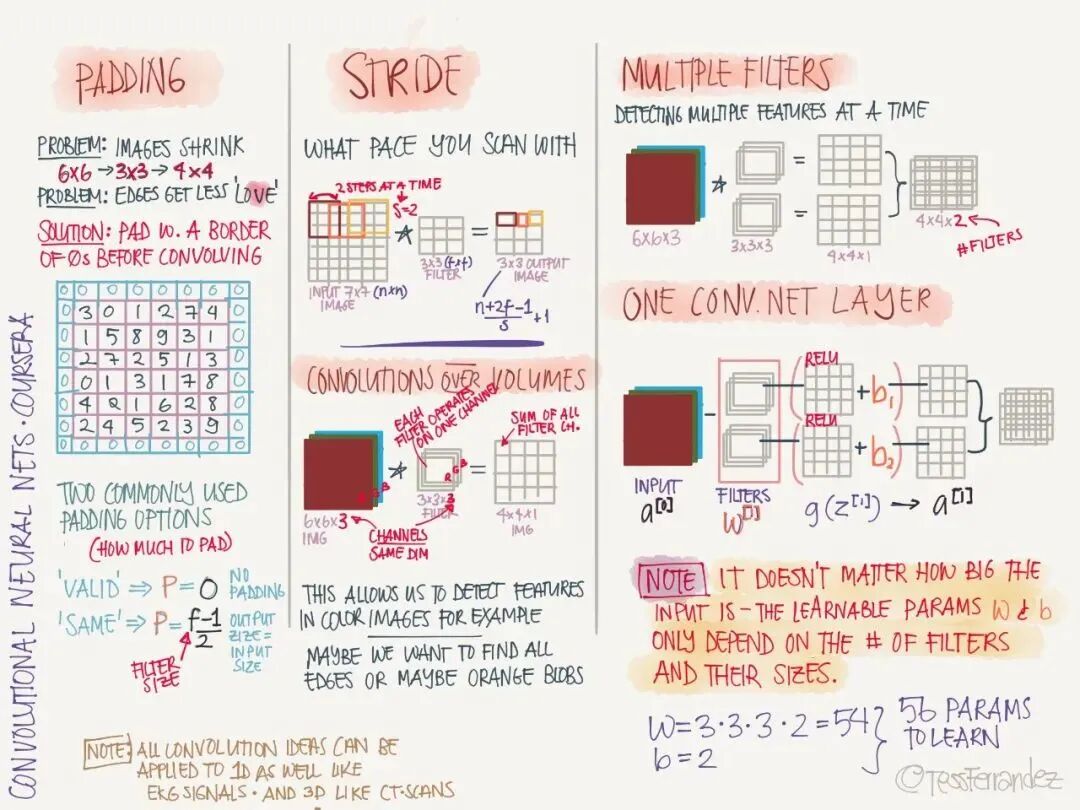 CONVOLUTIONAL NEURAL NETS · COURSERA
PADDING
PROBLEM: IMAGES SHRINK
6x6 → 3x3 → 4x4
PROBLEM: EDGES GET LESS 'LOVE'
SOLUTION: PAD W. A BORDER
OF 0s BEFORE CONVOLVING
0 0 0 0 0 0 0 0
0 3 0 1 2 7 4 0
0 1 5 8 9 3 1 0
0 2 7 2 5 1 3 0
0 0 1 3 1 7 8 0
0 4 2 1 6 2 8 0
0 2 4 5 2 3 9 0
0 0 0 0 0 0 0 0
TWO COMMONLY USED
PADDING OPTIONS
(HOW MUCH TO PAD)
'VALID' ⇒ P = 0
NO
PADDING
'SAME' ⇒ P = f-1
2
OUTPUT
SIZE =
INPUT
SIZE
FILTER
SIZE
NOTE: ALL CONVOLUTION IDEAS CAN BE
APPLIED TO 1D AS WELL LIKE
EKG SIGNALS · AND 3D LIKE CT-SCANS
STRIDE
WHAT PACE YOU SCAN WITH
2 STEPS AT A TIME
S=2
* =
INPUT 7x7 (n×n)
IMAGE
3x3 (f×f)
FILTER
3x3 OUTPUT
IMAGE
n+2f-1
s
+1
CONVOLUTIONS OVER VOLUMES
EACH
FILTER OPERATES
ON ONE CHANNEL
SUM OF ALL
FILTER CH.
* =
R G B
R G B
6x6x3
IMG
3x3x3
FILTER
4x4x1
IMG
CHANNELS
SAME DIM
THIS ALLOWS US TO DETECT FEATURES
IN COLOR IMAGES FOR EXAMPLE
MAYBE WE WANT TO FIND ALL
EDGES OR MAYBE ORANGE BLOBS
MULTIPLE FILTERS
DETECTING MULTIPLE FEATURES AT A TIME
* =
=
6x6x3
3x3x3
4x4x1
4x4x2
#FILTERS
ONE CONV. NET LAYER
RELU
( + b1 )
RELU
( + b2 )
INPUT
a[0]
FILTERS
W[1]
g(z[1]) → a[1]
NOTE IT DOESN'T MATTER HOW BIG THE
INPUT IS – THE LEARNABLE PARAMS W & b
ONLY DEPEND ON THE # OF FILTERS
AND THEIR SIZES.
W = 3·3·3·2 = 54
b = 2
56 PARAMS
TO LEARN
@TessFerrandez